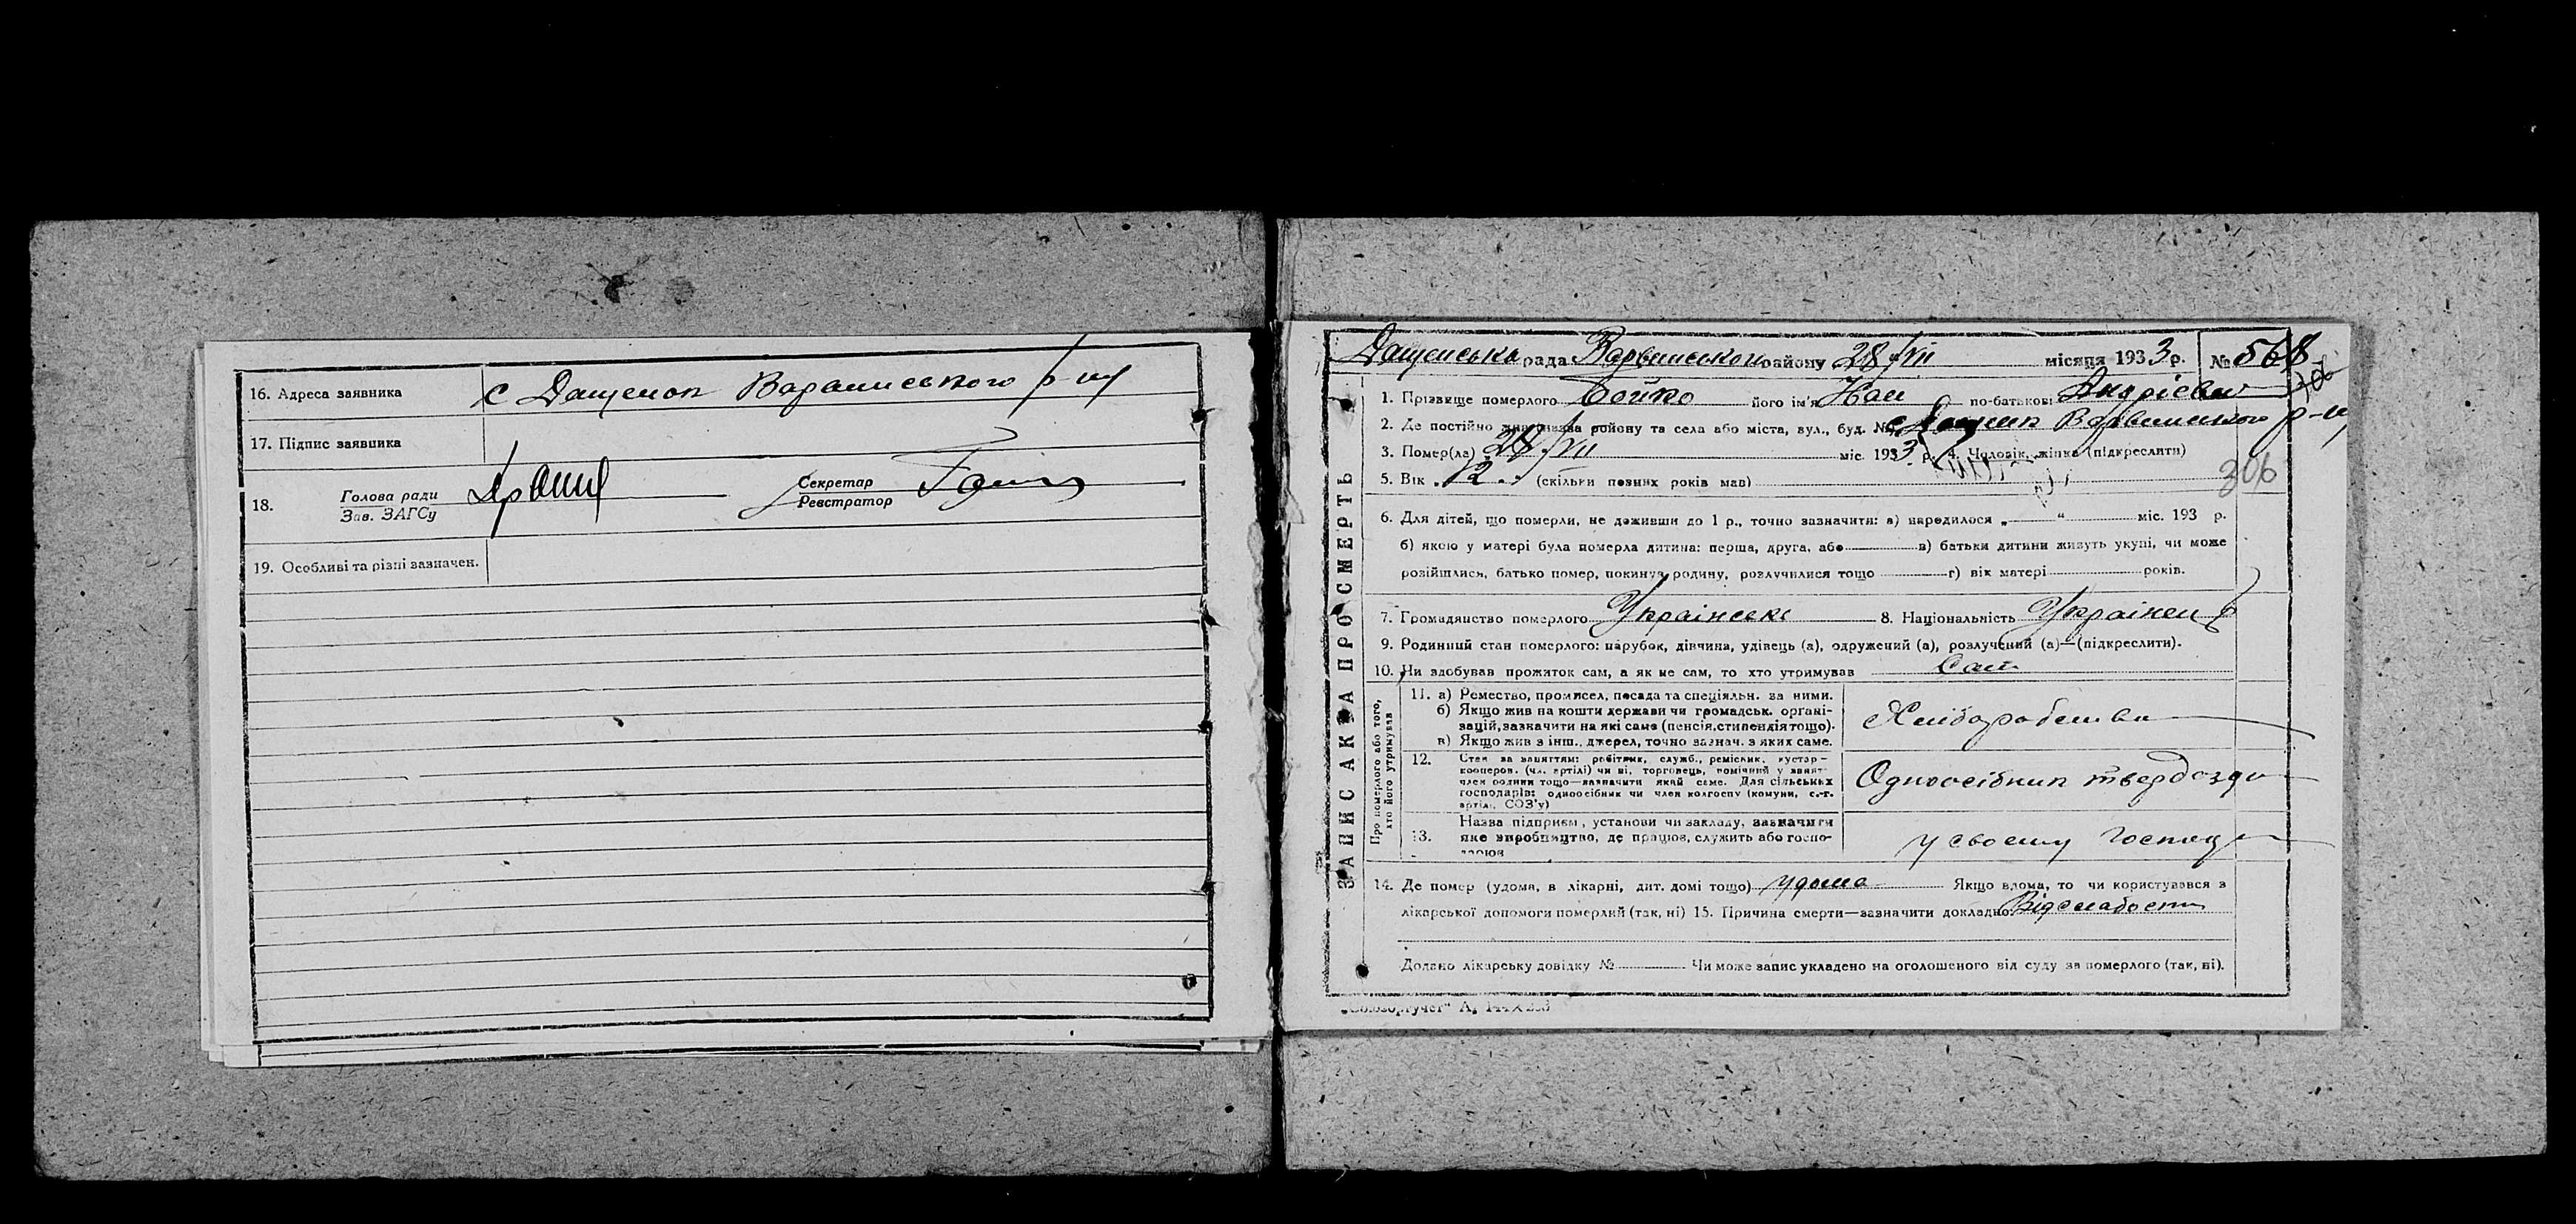 16. Адреса заявника с Дащенок Варвинського р-ну
17. Підпис заявника
18. Голова ради Секретар
Зав. ЗАГСу Реєстратор
19. Особливі та різні зазначен.
Дащенська рада Варвинського району 28/VII місяця 1933 р. № 568
1. Прізвище померлого Бойко його ім'я по-батькові Андрієвич
2. Де постійно жив назва району та села або міста, вул., буд. № с Дащенк Варвинського р-ну
3. Помер(ла) 28/VII міс. 1933 р. 4. Чоловік, жінка (підкреслити)
5. Вік 12 (скільки повних років мав)
306
6. Для дітей, що померли, не доживши до 1 р., точно зазначити: а) народилося „ “ міс. 193 р.
б) якою у матері була померла дитина: перша, друга, або в) батьки дитини живуть укупі, чи може
розійшлися, батько помер, покинув родину, розлучилися тощо г) вік матері років.
7. Громадянство померлого Українськ 8. Національність Українец
9. Родинний стан померлого: парубок, дівчина, удівець (а), одружений (а), розлучений (а)—(підкреслити).
10. Чи здобував прожиток сам, а як не сам, то хто утримував Сам
Про померлого або того, хто його утримував
11. а) Ремество, промисел, посада та спеціяльн. за ними.
б) Якщо жив на кошти держави чи громадськ. органі-
зацій, зазначити на які саме (пенсія, стипендія тощо).
в) Якщо жив з інш. джерел, точно зазнач. з яких саме.
Хліборобства
12. Стан за заняттям: робітник, служб., реміснник, кустар-
кооперов. (чл. артілі) чи ні, торговець, помічний у занят.
член родини тощо—зазначити який саме. Для сільських
господарів: одноосібник чи член колгоспу (комуни, с.-г.
артілі, СОЗ'у)
Одноосібник твердозда
13. Назва підприєм., установи чи закладу, зазначити
яке виробництво, де працює, служить або госпо-
дарює
у своєму господ
14. Де помер (удома, в лікарні, дит. домі тощо) удома Якщо вдома, то чи користувався з
лікарської допомоги померлий (так, ні) 15. Причина смерти—зазначити докладно Від слабости
Додано лікарську довідку № Чи може запис укладено на оголошеного від суду за померлого (так, ні).
ЗАПИС АКТА ПРО СМЕРТЬ